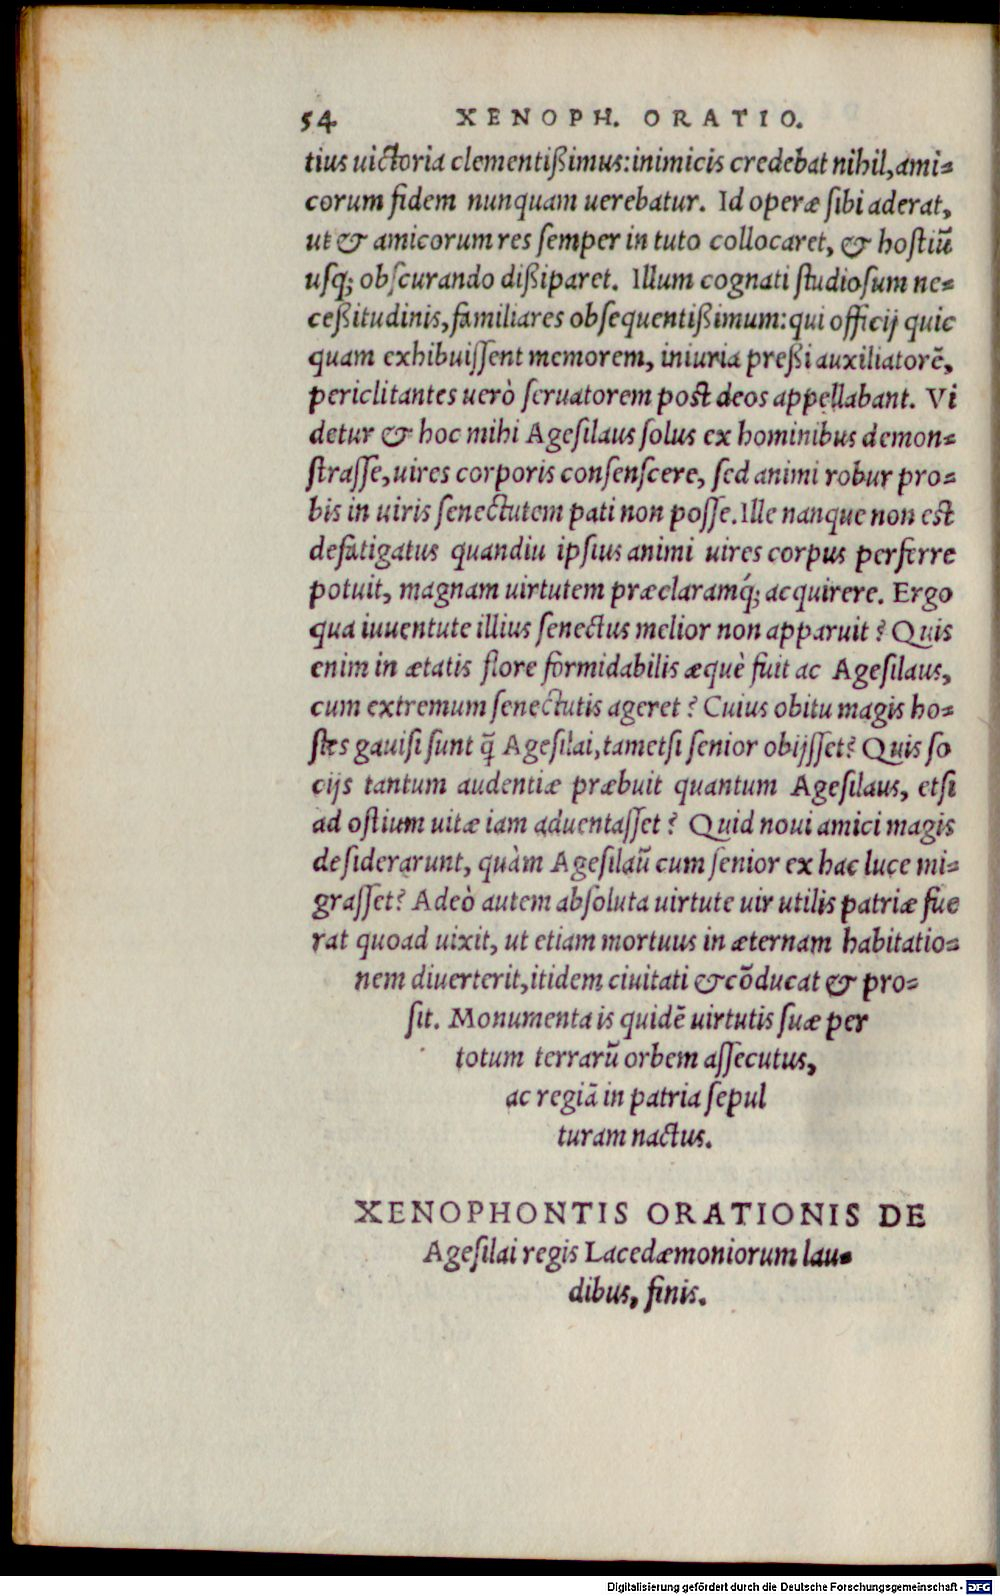 54 XENOPH. ORATIO.
tius uictoria clementißimus: inimicis credebat nihil, ami-
corum fidem nunquam uerebatur. Id operæ ſibi aderat,
ut & amicorum res ſemper in tuto collocaret, & hoſtiũ
uſq; obſcurando dißiparet. Illum cognati ſtudioſum ne-
ceßitudinis, familiares obſequentißimum: qui officij quic
quam exhibuiſſent memorem, iniuria preßi auxiliatorẽ,
periclitantes uerò ſeruatorem poſt deos appellabant. Vi
detur & hoc mihi Ageſilaus ſolus ex hominibus demon-
ſtraſſe, uires corporis conſenſcere, ſed animi robur pro-
bis in uiris ſenectutem pati non poſſe. Ille nanque non eſt
defatigatus quandiu ipſius animi uires corpus perferre
potuit, magnam uirtutem præclaramq́; acquirere. Ergo
qua iuuentute illius ſenectus melior non apparuit? Quis
enim in ætatis flore formidabilis æquè fuit ac Ageſilaus,
cum extremum ſenectutis ageret? Cuius obitu magis ho-
ſtes gauiſi ſunt q̃ Ageſilai, tametſi ſenior obijſſet? Quis ſo
cijs tantum audentiæ præbuit quantum Ageſilaus, etſi
ad oſtium uitæ iam aduentaſſet? Quid noui amici magis
deſiderarunt, quàm Ageſilaũ cum ſenior ex hac luce mi-
graſſet? Adeò autem abſoluta uirtute uir utilis patriæ fue
rat quoad uixit, ut etiam mortuus in æternam habitatio-
nem diuerterit, itidem ciuitati & cõducat & pro-
ſit. Monumenta is quidẽ uirtutis ſuæ per
totum terrarũ orbem aſſecutus,
ac regiã in patria ſepul
turam nactus.
XENOPHONTIS ORATIONIS DE
Ageſilai regis Lacedæmoniorum lau-
dibus, finis.
Digitalisierung gefördert durch die Deutsche Forschungsgemeinschaft - DFG